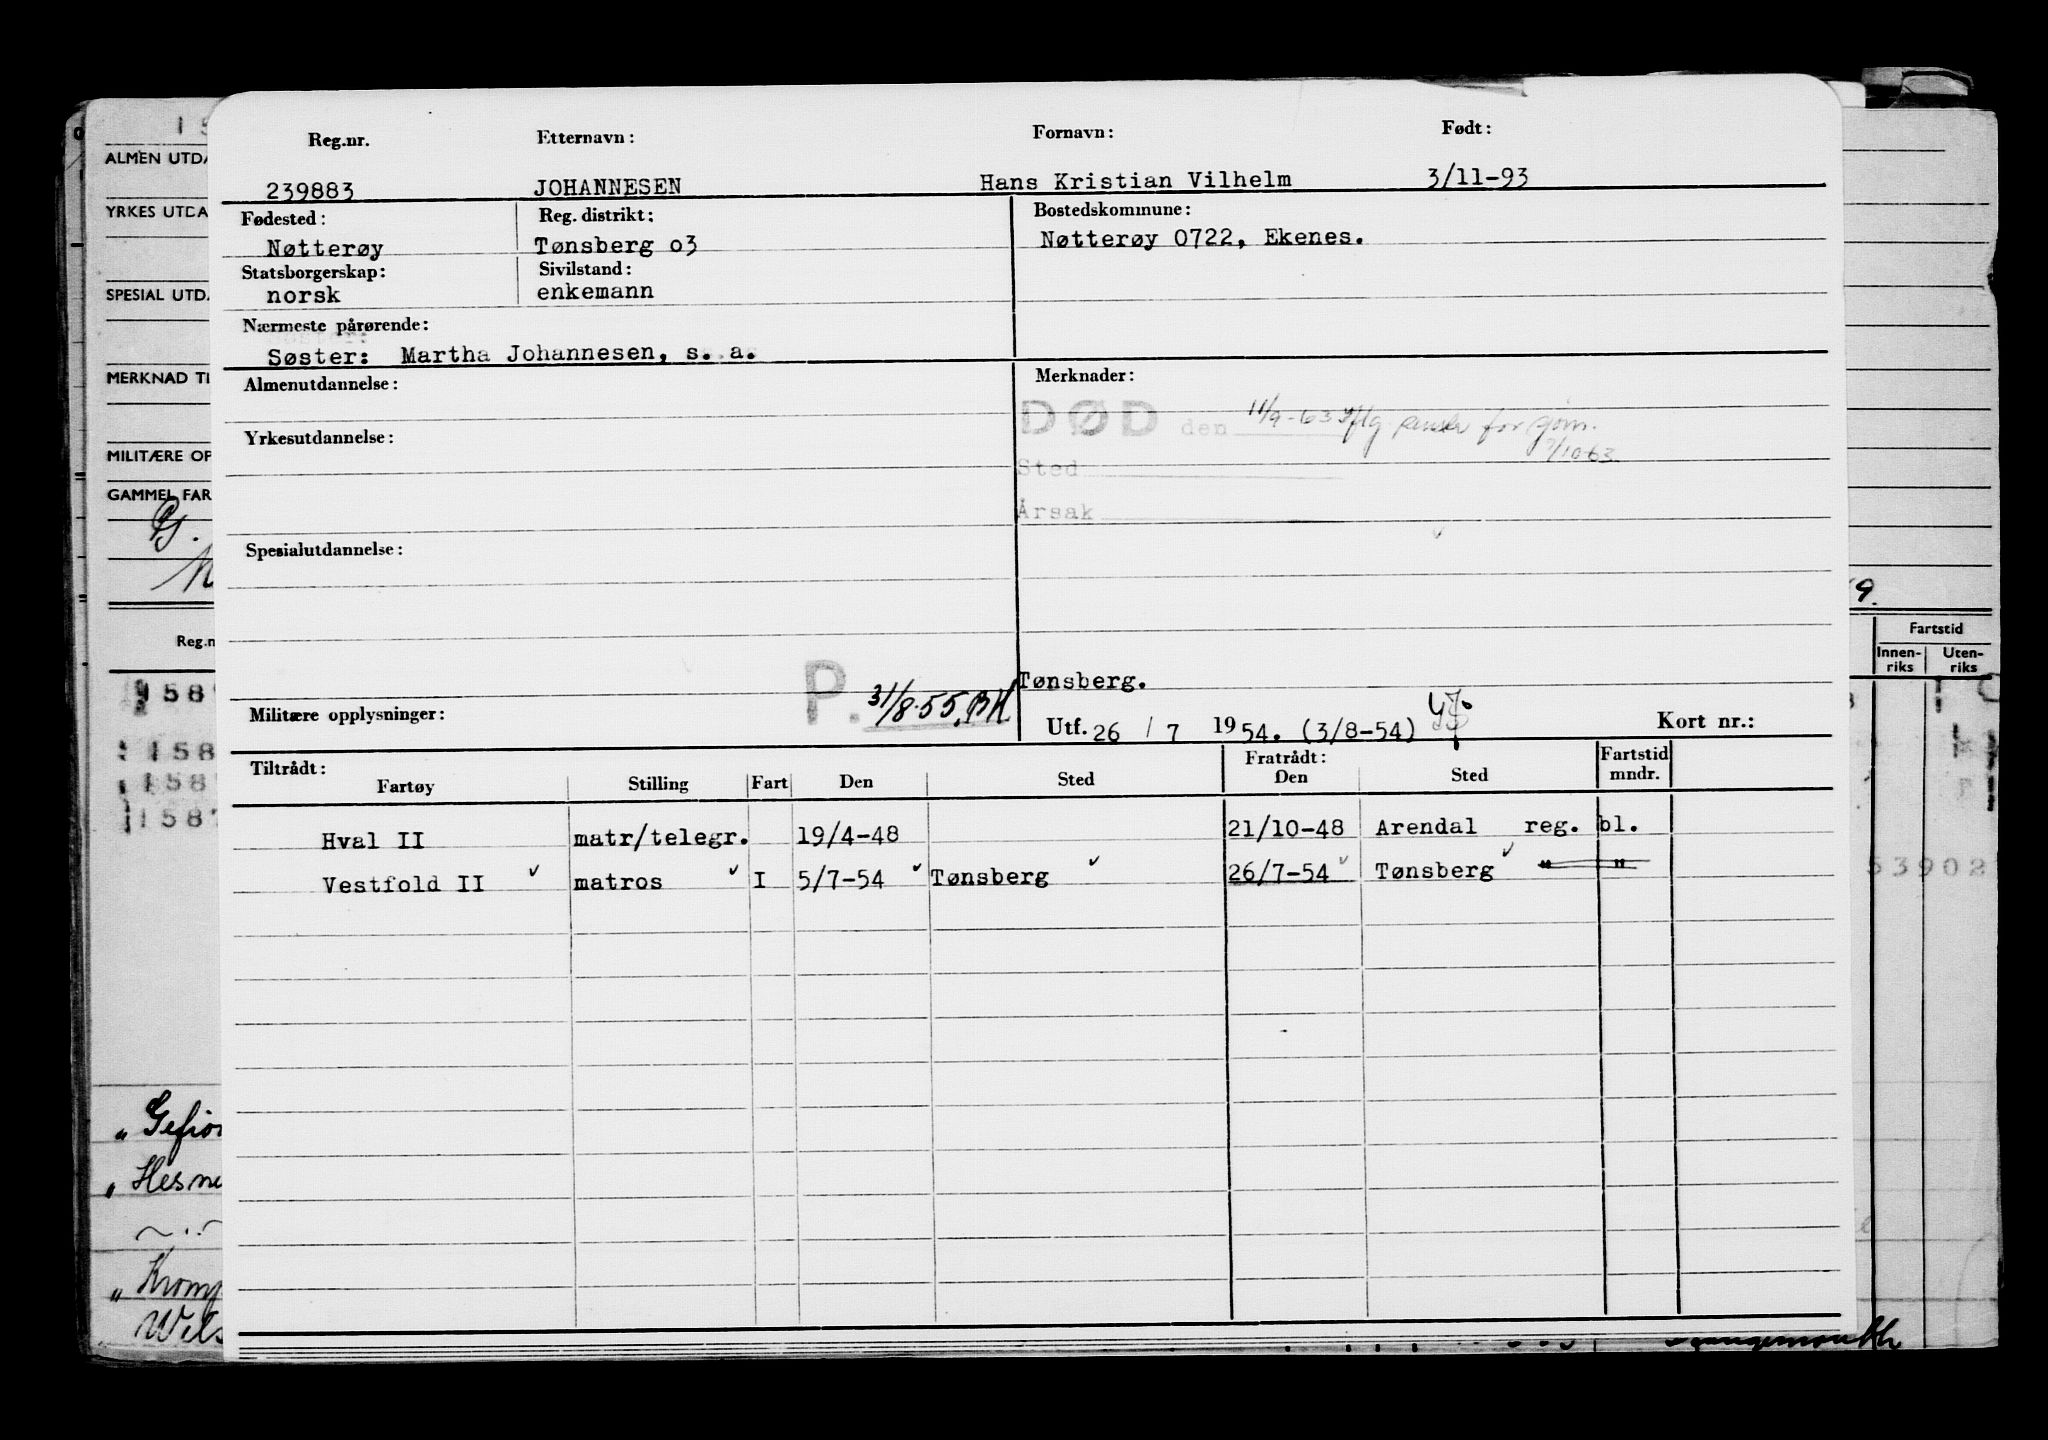 Reg.nr. Etternavn: Fornavn: Født:
239883 JOHANNESEN Hans Kristian Vilhelm 3/11-93
Fødested: Reg. distrikt: Bostedskommune:
Nøtterøy Tønsberg o3 Nøtterøy 0722, Ekenes.
Statsborgerskap: Sivilstand:
norsk enkemann
Nærmeste pårørende:
Søster: Martha Johannesen, s. a.
Almenutdannelse: Merknader:
DØD den 11/9-63 iflg. for sjøm.
Yrkesutdannelse: 7/10 63
Sted
Årsak
Spesialutdannelse:
Tønsberg.
P. 31/8-55. BK
Militære opplysninger: Utf. 26 / 7 1954. (3/8-54) Kort nr.:
Tiltrådt: Fratrådt: Fartstid
Fartøy Stilling Fart Den Sted Den Sted mndr.
Hval II matr/telegr. 19/4-48 21/10-48 Arendal reg. bl.
Vestfold II matros I 5/7-54 Tønsberg 26/7-54 Tønsberg " "
ALMEN UTDA
YRKES UTDA
SPESIAL UTDA
MERKNAD TI
MILITÆRE OP
GAMMEL FAR
Reg.n
158
158
158
1587
Hesne
Wils
9.
Fartstid
Innen-riks Uten-riks
53902